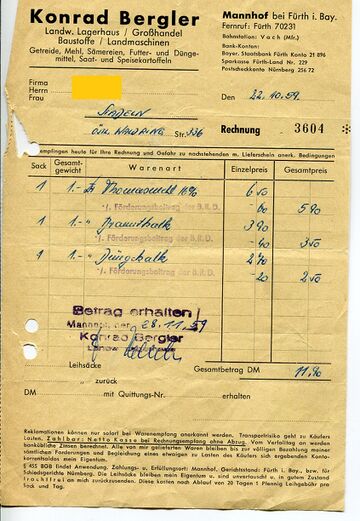 Konrad Bergler
Landw. Lagerhaus / Großhandel
Baustoffe / Landmaschinen
Getreide, Mehl, Sämereien, Futter- und Dünge-
mittel, Saat- und Speisekartoffeln
Mannhof bei Fürth i. Bay.
Fernruf: Fürth 70231
Bahnstation: Vach (Mfr.)
Bank-Konten:
Bayer. Staatsbank Fürth Konto 21 896
Sparkasse Fürth-Land Nr. 229
Postscheckkonto Nürnberg 256 72
Firma
Herrn
Frau
Stadeln
Str. 336
Den 22.10.59.
Rechnung 3604 *
empfingen heute für Ihre Rechnung und Gefahr zu nachstehenden m. Lieferschein anerk. Bedingungen
Sack Gesamt-gewicht Warenart Einzelpreis Gesamtpreis
1 1.- Thomasmehl 6 50
./. Förderungsbeitrag der B.R.D. - 60 5 90
1 1.- " 3 90
./. Förderungsbeitrag der B.R.D. - 40 3 50
1 1.- " Düngekalk
./. Förderungsbeitrag der B.R.D. - 20 2 50
Betrag erhalten
Mannhof, der 28.11.59
Konrad Bergler
Landw. Lagerhaus
Leihsäcke Gesamtbetrag DM 11.90
" zurück
DM mit Quittungs-Nr. erhalten
DM
Leihsäcke
Reklamationen können nur sofort bei Warenempfang anerkannt werden. Transportrisiko geht zu Käufers
Lasten. Zahlbar: Netto Kasse bei Rechnungsempfang ohne Abzug. Vom Verfalltag an werden
bankübliche Zinsen berechnet. Alle von mir gelieferten Waren bleiben bis zur völligen Bezahlung meiner
sämtlichen Forderungen und Begleichung eines etwaigen zu Lasten des Käufers sich ergebenden Konto-
korrentsaldos mein Eigentum.
§ 455 BGB findet Anwendung. Zahlungs- u. Erfüllungsort: Mannhof. Gerichtsstand: Fürth i. Bay., bzw. für
Schiedsgerichte Nürnberg. Die Leihsäcke bleiben mein Eigentum u. sind unvertauscht u. in gutem Zustand
frachtfrei an mich zurückzusenden. Diese kosten nach Ablauf von 20 Tagen 1 Pfennig Leihgebühr pro
Sack und Tag.